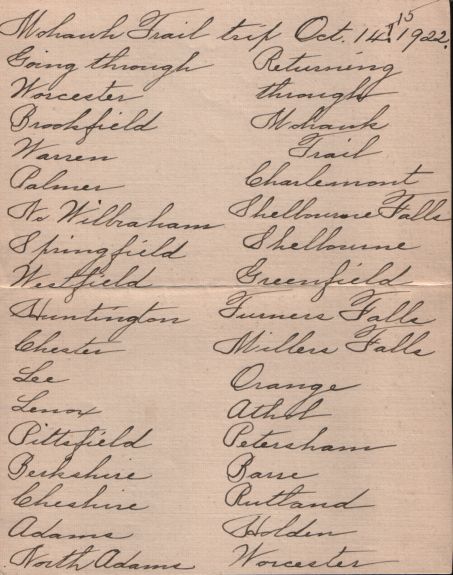 Mohawk Trail trip Oct. 14 & 15 1922.
Going through
Worcester
Brookfield
Warren
Palmer
No Wilbraham
Springfield
Westfield
Huntington
Chester
Lee
Lenox
Pittsfield
Berkshire
Cheshire
Adams
North Adams
Returning
through
Mohawk
Trail
Charlemont
Shelbourne Falls
Shelbourne
Greenfield
Turners Falls
Millers Falls
Orange
Athol
Petersham
Barre
Rutland
Holden
Worcester